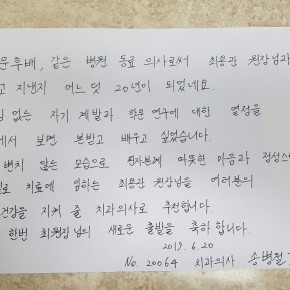 문후배, 같은 병원 동료 의사로써 최용관 원장님과
고 지낸지 어느 덧 20년이 되었네요.
임없는 자기 계발과 학문 연구에 대한 열정을
에서 보면 본받고 배우고 싶었습니다.
변치 않는 모습으로 환자분께 따뜻한 마음과 정성스
로 치료에 임하는 최용관 원장님을 여러분의
건강을 지켜 줄 치과의사로 추천합니다.
한번 최원장님의 새로운 출발을 축하 합니다.
2019. 6. 20
No. 20064 치과의사 송병철